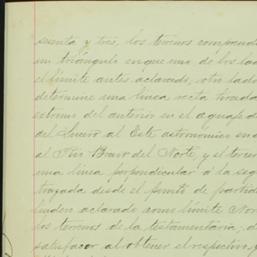 sesenta y tres, los terrenos comprend
un triángulo en que uno de los lad
el límite antes aclarado, otro lado
determine una línea recta tirada
estremo del anterior en el aguaje d
del Lucero al Este astronómico en
al Rio Bravo del Norte, y el tercer
una línea perpendicular á la seg
trazada desde el punto de partid
linden aclarado como límite Nor
los terrenos de la testamentaría; d
satisfacer al obtener el respectivo